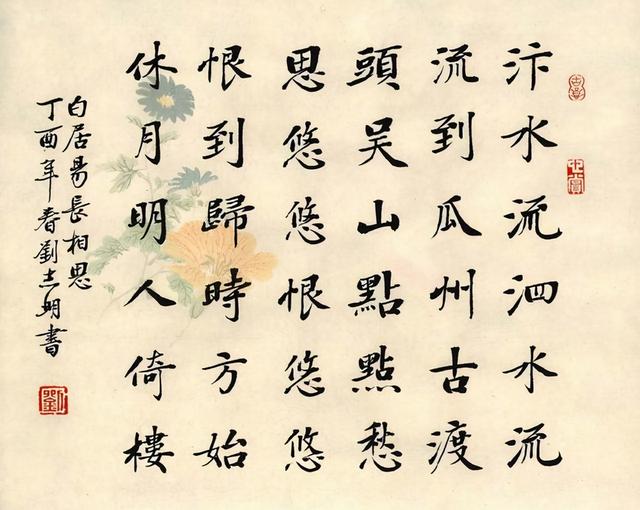 汴水流泗水流
流到瓜州古渡
頭吴山點點愁
思悠悠恨悠悠
恨到歸時方始
休月明人倚樓
白居易長相思
丁酉年春劉志明書
劉